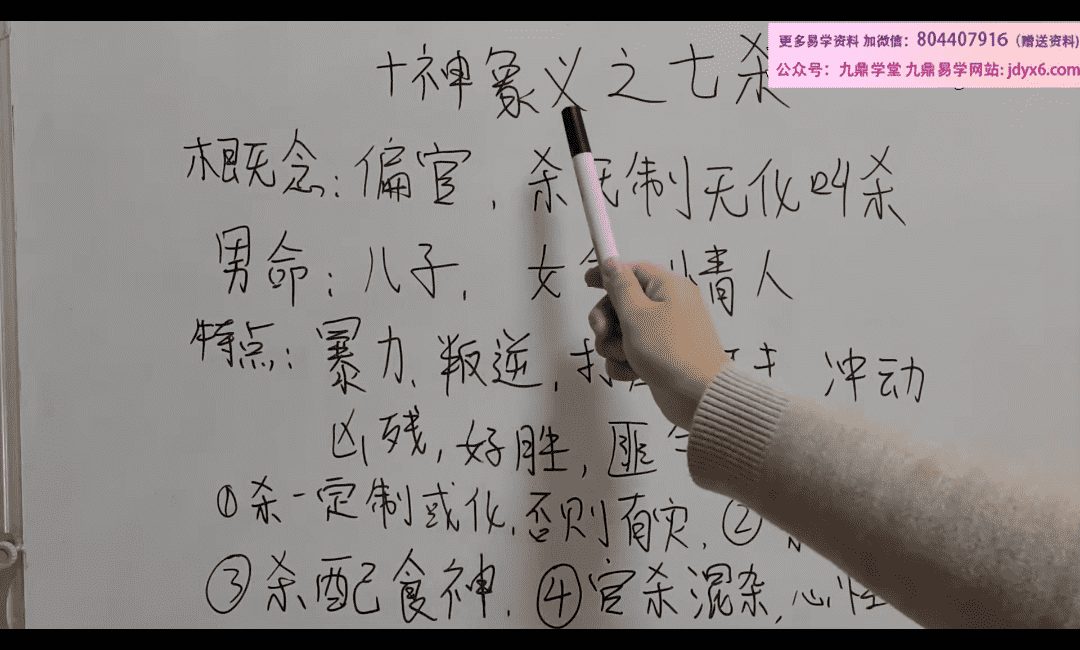 更多易学资料 加微信：804407916（赠送资料)
公众号：九鼎学堂 九鼎易学网站: jdyx6.com
十神象义之七杀
概念：偏官，杀无制无化叫杀
男命：儿子，女 情人
特点：暴力、叛逆，打 冲动
凶残，好胜，匪
①杀一定制或化，否则有灾，②
③杀配食神，④官杀混杂，心性